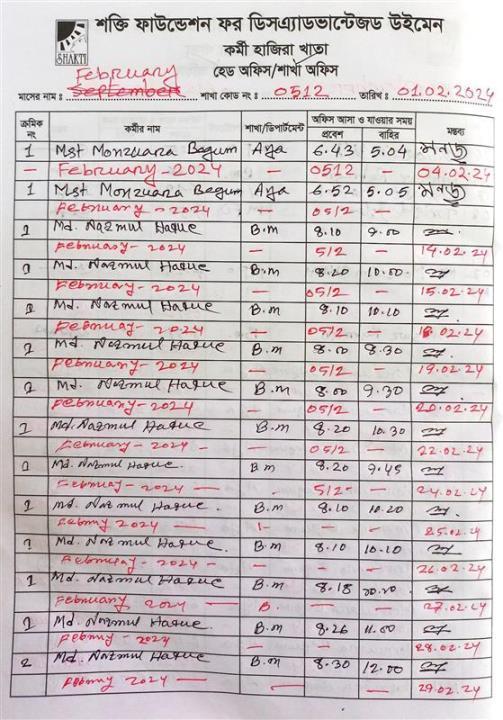 SHAKTI
শক্তি ফাউন্ডেশন ফর ডিসএ্যাডভান্টেজড উইমেন
কর্মী হাজিরা খাতা
হেড অফিস/শাখা অফিস
February
মাসের নাম : September শাখা কোড নং : 0512 তারিখ : 01.02.2024
ক্রমিক নং কর্মীর নাম শাখা/ডিপার্টমেন্ট অফিস আসা ও যাওয়ার সময় মন্তব্য
প্রবেশ বাহির
1 Mst Monzuara Begum Aya 6.43 5.04
— February - 2024 — 0512 — 04.02.24
1 Mst Monzuara Begum Aya 6.52 5.05
February - 2024 — 0512 —
1 Md. Nazmul Haque B.m 8.10 9.00
February - 2024 — 512 — 14.02.24
1 Md. Nazmul Haque B.m 8.20 10.00
February - 2024 — 0512 — 15.02.24
1 Md. Nazmul Haque B.m 8.10 10.10
February - 2024 — 0512 — 18.02.24
1 Md. Nazmul Haque B.m 8.00 8.30
February - 2024 — 0512 — 19.02.24
1 Md. Nazmul Haque B.m 8.00 9.30
February - 2024 0512 — 20.02.24
1 Md. Nazmul Haque B.m 8.20 10.30
February - 2024 — 0512 — 22.02.24
1 Md. Nazmul Haque. B.m 8.20 9.45
February - 2024 — 512 - — 24.02.24
1 Md. Nazmul Haque. B.m 8.10 10.20
2024 — 25.02.24
1 Md. Nazmul Haque. B.m 8.10 10.10
February - 2024 — — — 26.02.24
1 Md. Nazmul Haque B.m 8.18
February 2024 — B. — — 27.02.24
1 Md. Nazmul Haque B.m 8.26 11.00
- 2024 — — 28.02.24
2 Md. Nazmul Haque B.M 8.30 12.00
2024 — — — 29.02.24